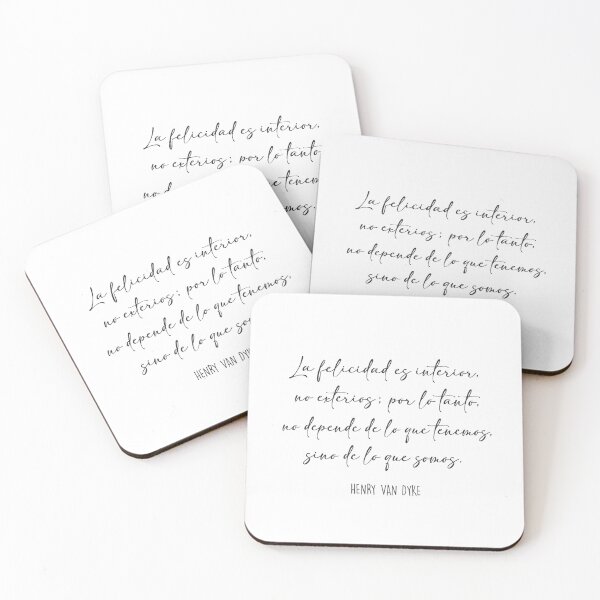 La felicidad es interior,
no exterios; por lo tanto
no que tenem
somos.
La felicidad es interior,
no exterios; por lo tanto,
no depende de lo que tenemos,
sino de lo que somos.
La felicidad es interior,
no exterios; por lo tanto,
no depende de lo que tenemos,
sino de lo que so
HENRY VAN DYK
La felicidad es interior,
no exterios; por lo tanto,
no depende de lo que tenemos,
sino de lo que somos.
HENRY VAN DYKE